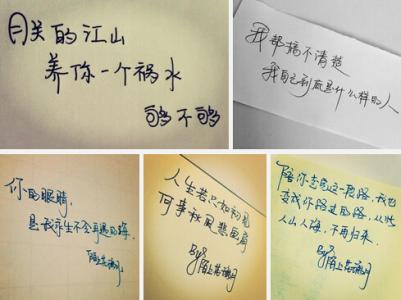 朕的江山
养你一个祸水
够不够
我都搞不清楚
我自己到底是什么样的人
你的眼睛,
是我永生不会再遇的海.
人生若只如初见
何事秋风悲画扇
By:陌上
陪你走完这一段路,我也
变成你路过的路,从此
人山人海,不再归来.
By:陌上